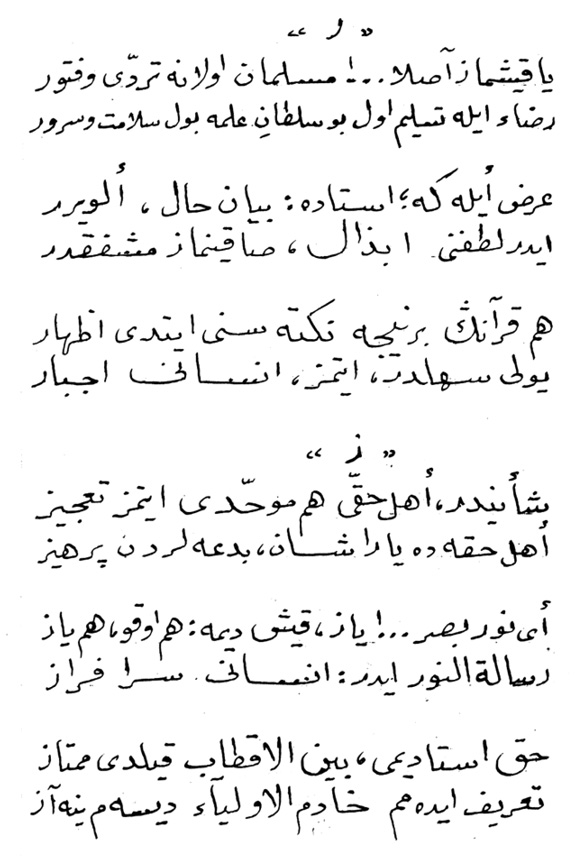 « ر »
ياقيشماز آصلا...! مسلمان اولانه تردّى و فتور
رضاء ايله تسليم اول بو سلطانِ علمه بول سلامت و سرور
عرض أيله كه؛ استاده: بيان حال، ألويرر
ايدر لطفنى ابذال، صاقينماز مشفقدر
هم قرآنڭ بر نيجه نكته سنى ايتدى اظهار
يولى سهلدر، ايتمز، انسانى اجبار
« ز »
شأنيدر، أهل حقّى هم موحّدى ايتمز تعجيز
أهل حقه ده ياراشان، بدعه لردن پرهيز
أى نور بصر...! ياز، قيش ديمه: هم اوقو، هم ياز
رسالة النور ايدر: انسانى سرا فراز
حق استاديمى، بين الاقطاب قيلدى ممتاز
تعريف ايده مم خادم الاولياء ديسه م ينه آز